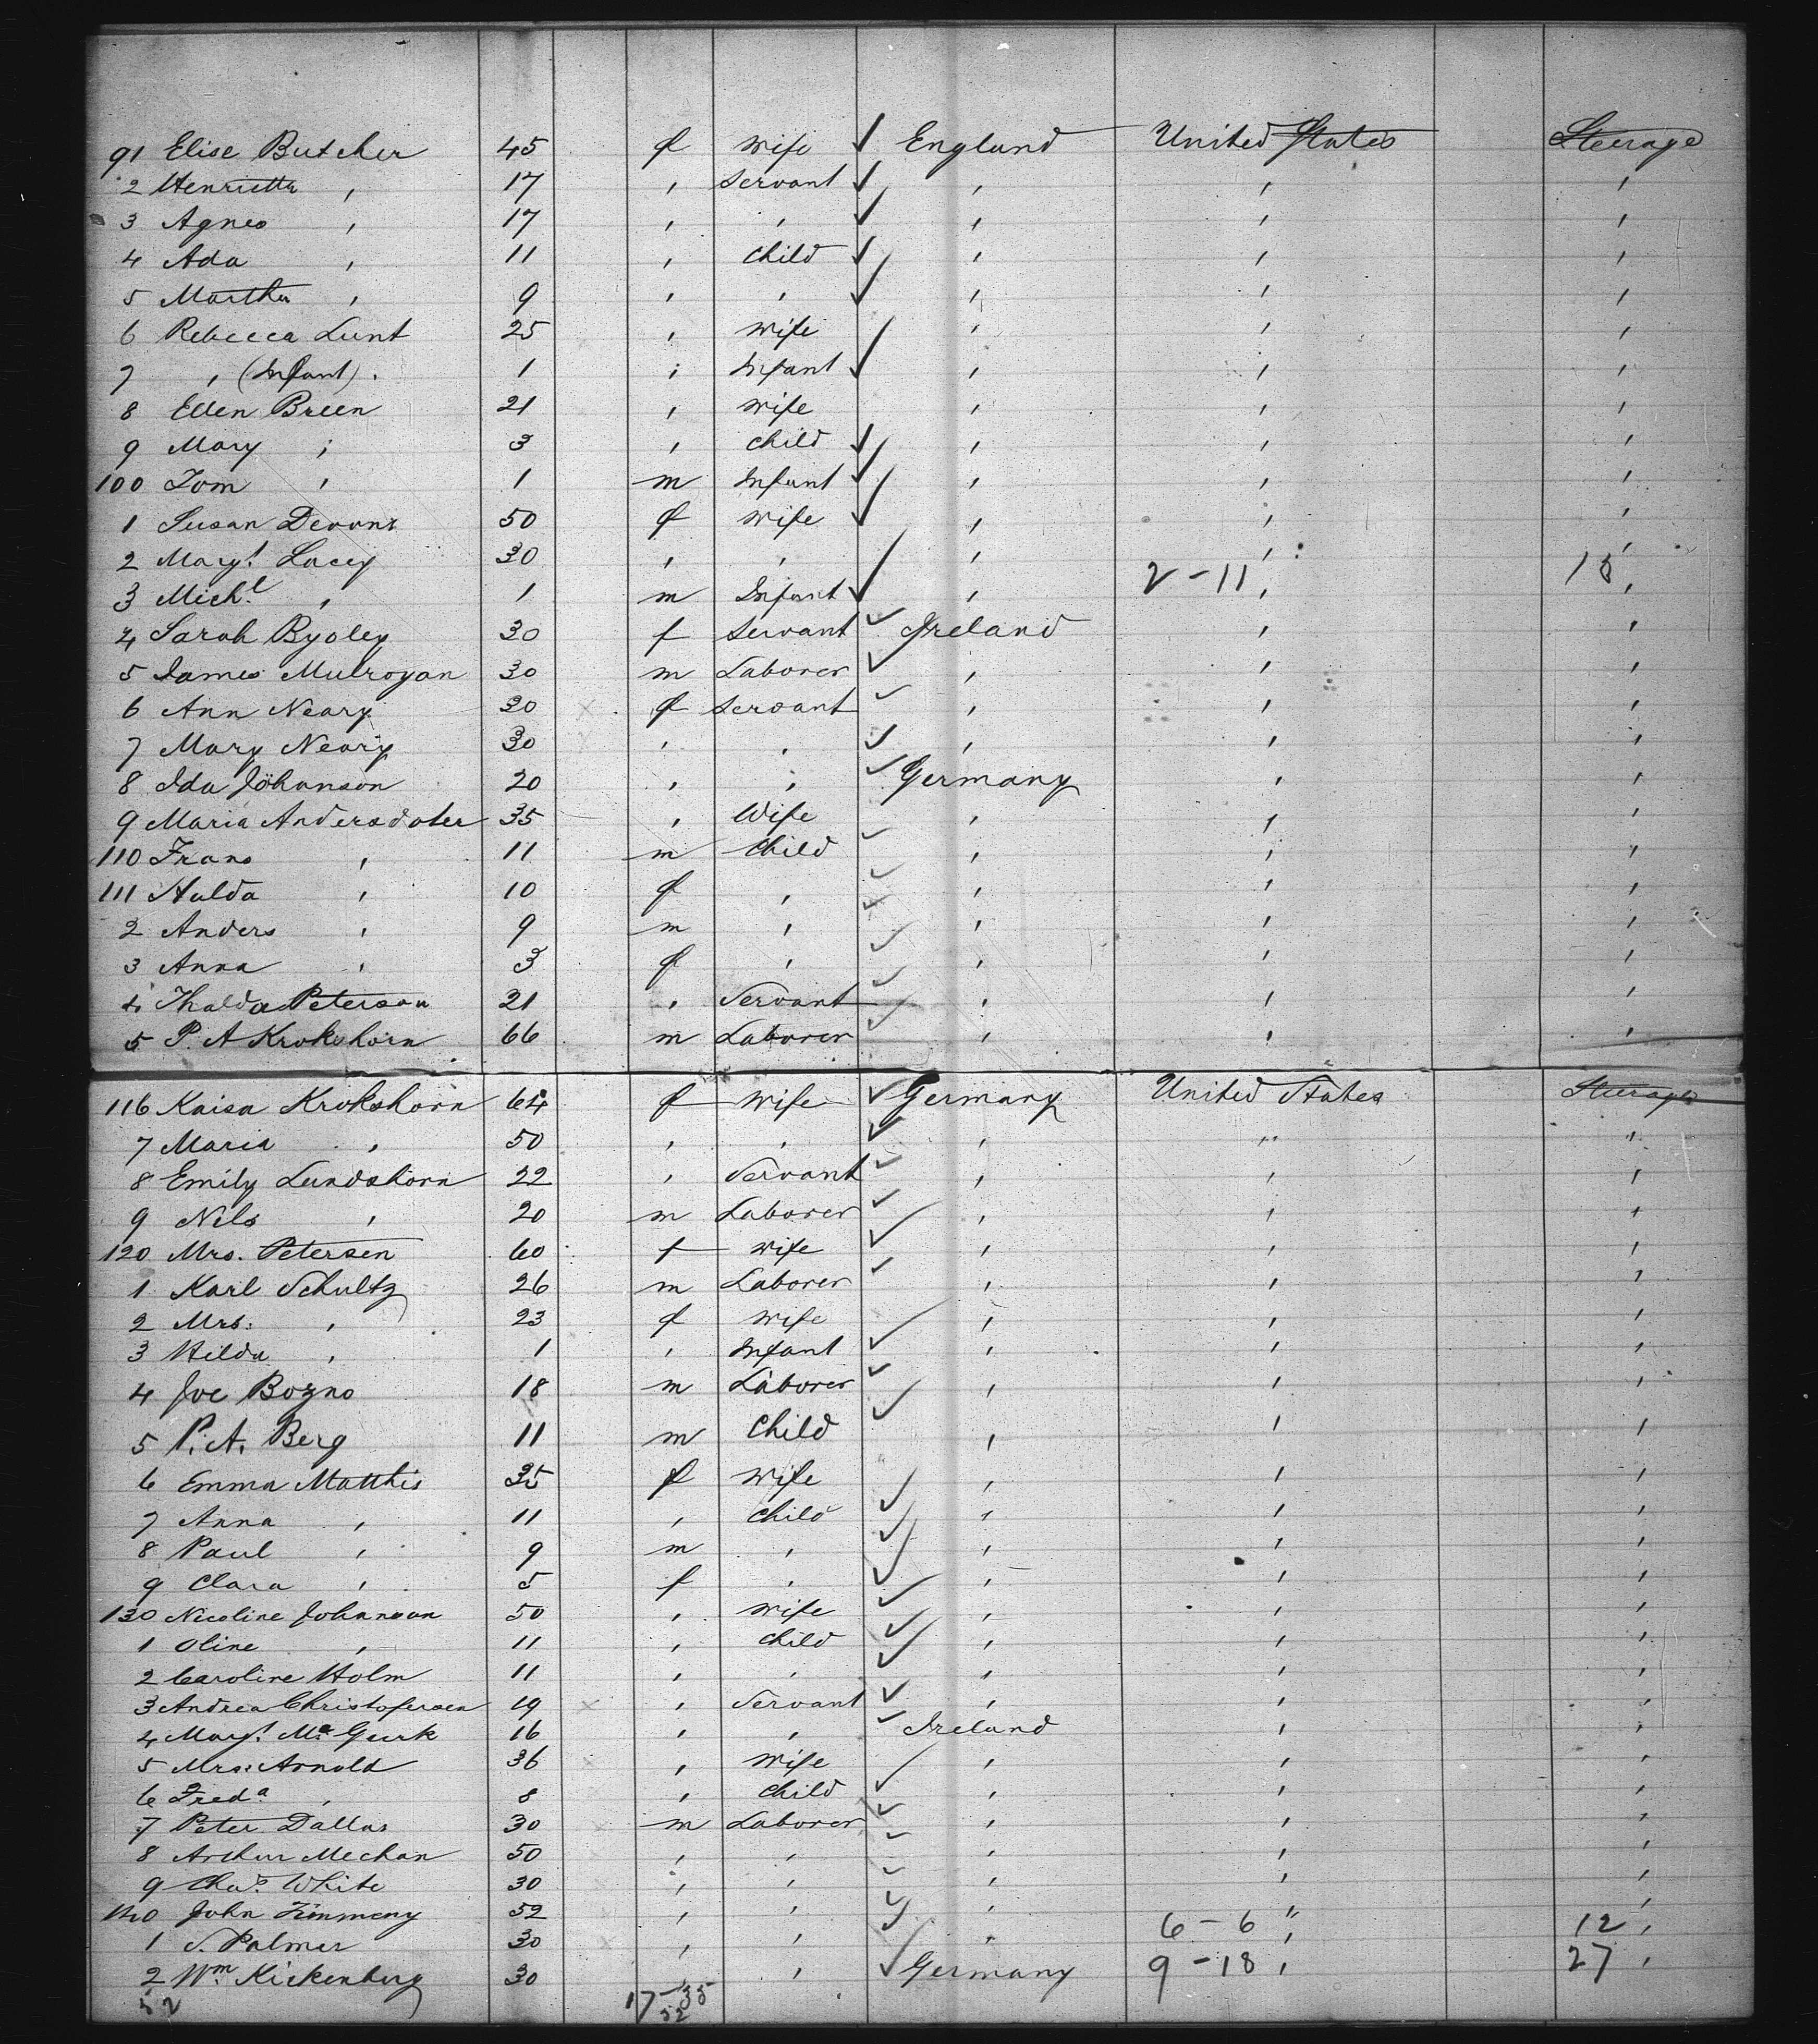 91 Elise Butcher 45 f wife ✓ England United States Steerage
2 Henrietta , 17 , Servant ✓ , , ,
3 Agnes , 17 , , ✓ , , ,
4 Ada , 11 , Child ✓ , , ,
5 Martha , 9 , , ✓ , , ,
6 Rebecca Lunt 25 , wife , , ,
7 , (Infant) . 1 , Infant ✓ , , ,
8 Ellen Breen 21 , wife , , ,
9 Mary , 3 , Child ✓ , , ,
100 Tom , 1 m Infant ✓ , , ,
1 Susan 50 f wife ✓ , , ,
2 Margt. Lacey 30 , , , , ,
3 Michl. , 1 m Infant ✓ , 2 - 11 , ,
4 Sarah Byoley 30 f Servant ✓ Ireland , ,
5 James Mulrogan 30 m Laborer ✓ , , ,
6 Ann Neary 30 f Servant ✓ , , ,
7 Mary Neary 30 , , ✓ , , ,
8 Ida Johanson 20 , , ✓ Germany , ,
9 Maria Andersdoter 35 , Wife , , ,
110 Frans , 11 m Child ✓ , , ,
111 Hulda , 10 f , ✓ , , ,
2 Anders , 9 m , ✓ , , ,
3 Anna , 3 f , ✓ , , ,
4 Thalda Peterson 21 , Servant ✓ , , ,
5 P. A Krokshorn 66 m Laborer ✓ , , ,
116 Kaisa Krokshorn 64 f wife ✓ Germany United States Steerage
7 Maria , 50 , , ✓ , " "
8 Emily Lundshorn 22 , Servant ✓ , , ,
9 Nils , 20 m Laborer ✓ , , ,
120 Mrs. Petersen 60 f wife ✓ , , ,
1 Karl Schultz 26 m Laborer ✓ , , ,
2 Mrs. , 23 f wife , , ,
3 Hilda , 1 , Infant ✓ , , ,
4 Joe Bozno 18 m Laborer ✓ , , ,
5 P. A. Berg 11 m Child ✓ , , ,
6 Emma Matthis 35 f wife , , ,
7 Anna , 11 , Child ✓ , , ,
8 Paul , 9 m , ✓ , , ,
9 Clara , 5 f , ✓ , , ,
130 Nicoline Johanson 50 , wife ✓ , , ,
1 Oline , 11 , Child ✓ , , ,
2 Caroline Holm 11 , , ✓ , , ,
3 Andrea Christofersen 19 , Servant ✓ , , ,
4 Margt. Mc Gurk 16 , , ✓ Ireland , ,
5 Mrs. Arnold 36 , wife , , ,
6 Freda , 8 , Child ✓ , , ,
7 Peter Dallas 30 m Laborer ✓ , , ,
8 Arthur Mechan 50 , , ✓ , , ,
9 Chas. White 30 , , ✓ , , ,
140 John Zimmeny 52 , , ✓ , 6 - 6 " 12 ,
1 S. Palmer 30 , , ✓ , , ,
2 Wm. Kickenburg 30 , ✓ Germany 9 - 18 , 27 ,
52 17 - 35
52